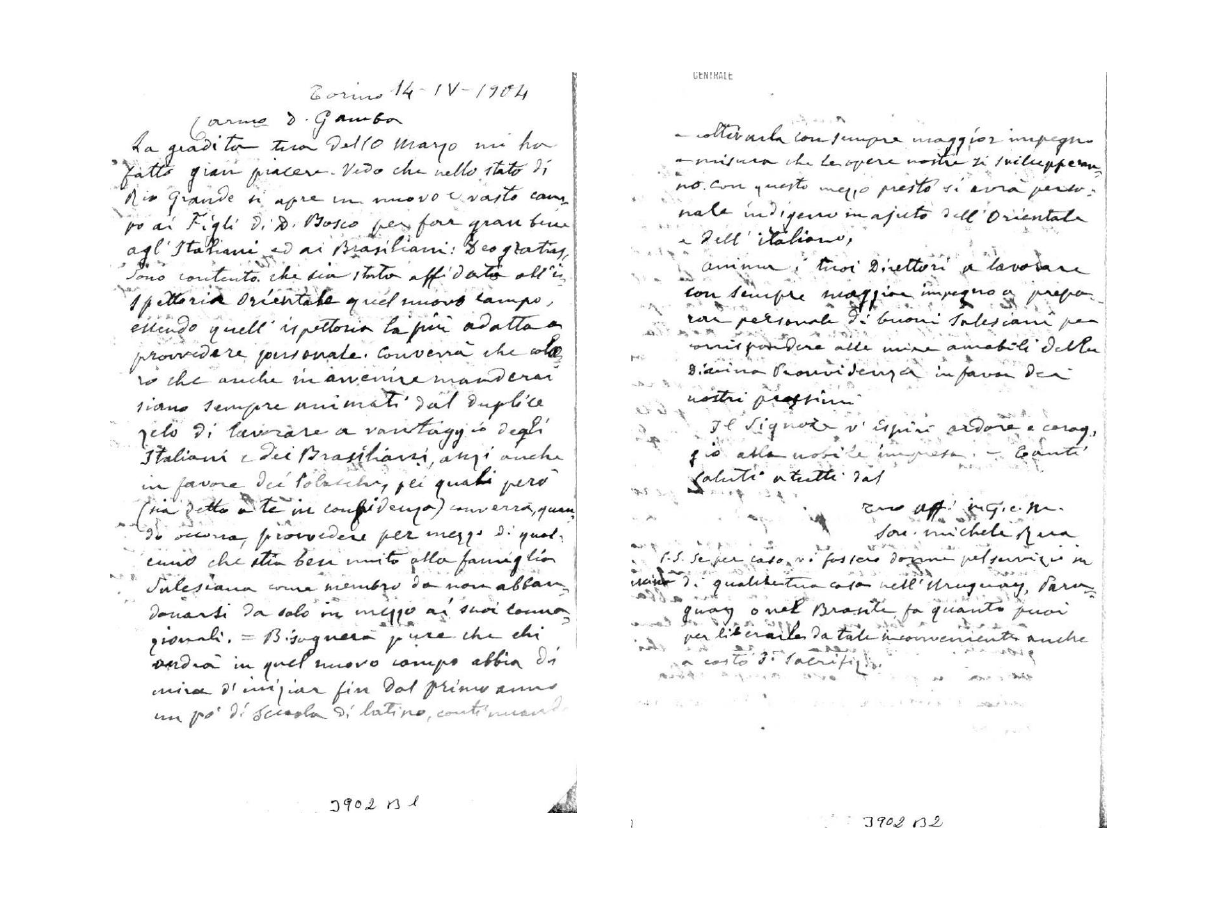 Torino 14-IV-1904
Carmo D. Gamba
La gradita tua dell 10 Marzo mi ha
fatto gran piacere. Vedo che nello stato di
Rio Grande si apre un nuovo e vasto cam-
po ai Figli di D. Bosco per far gran bene
agl'Italiani ed ai Brasiliani: Deo gratias,
Sono contento che sia stato affidato all'i-
spettoria Orientale quel nuovo campo,
essendo quell'ispettoria la più adatta a
provvedere personale. Converrà che colo-
ro che anche in avvenire manderai
siano sempre animati dal duplice
zelo di lavorare a vantaggio degli
Italiani e dei Brasiliani, anzi anche
in favore dei Polacchi, pei quali però
(sia detto a te in confidenza) converrà, quan-
do occorra, provvedere per mezzo di qual-
cuno che stia bene unito alla famiglia
Salesiana come membro da non abban-
donarsi da solo in mezzo ai suoi conna-
zionali. = Bisognerà pure che chi
andrà in quel nuovo campo abbia di
mira d'iniziar fin dal primo anno
un po' di scuola di latino, continuando
3902 B1
CENTRALE
a coltivarla con sempre maggior impegno
a misura che le opere nostre si svilupperan-
no. Con questo mezzo presto si avrà perso-
nale indigeno in ajuto dell'Orientale
e dell'italiano,
Anima i tuoi Direttori a lavorare
con sempre maggior impegno a prepa-
rar personale di buoni Salesiani per
corrispondere alle mire amabili della
Divina Provvidenza in favor dei
nostri prossimi
Il Signore v'ispiri ardore e corag-
gio alla nobile impresa. - Tanti
saluti a tutti dal
Tuo aff. in G. e M.
Sac. Michele Rua
P.S. Se per caso vi fossero donne pel servizio in
cucina di qualche tua casa nell'Uruguay, Para-
guay o nel Brasile fa quanto puoi
per liberarle da tale inconveniente anche
a costo di sacrifizi.
3902 B2